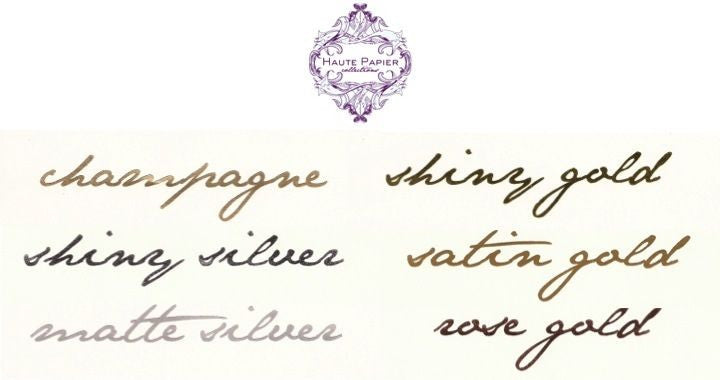 HAUTE PAPIER
collections
champagne
shiny silver
matte silver
shiny gold
satin gold
rose gold